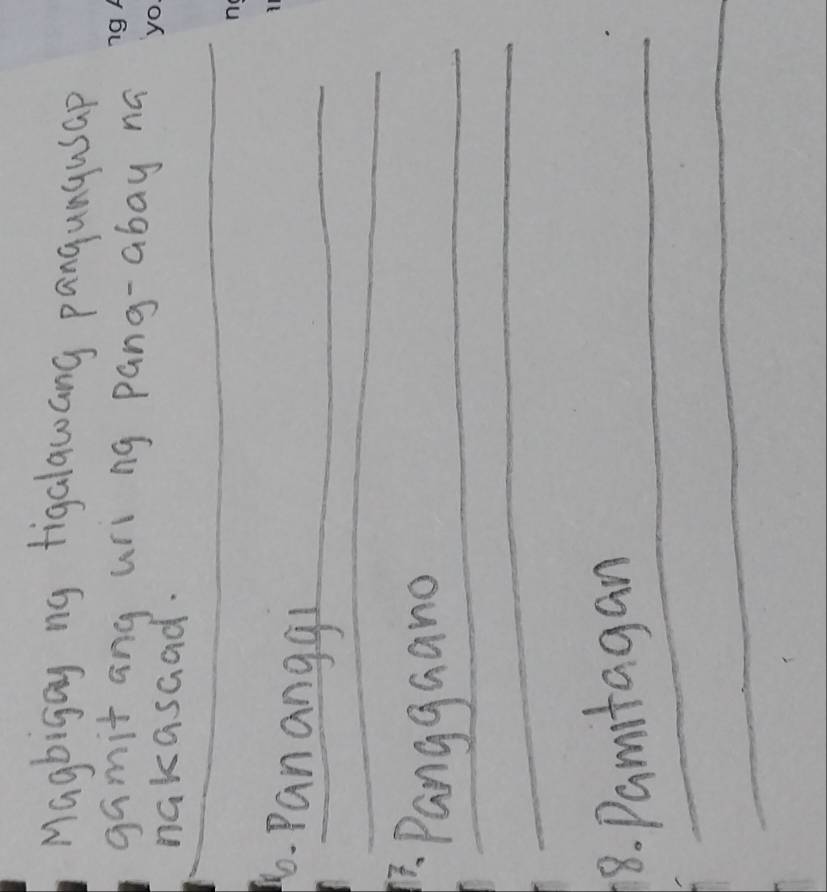 Magbigay ng tigalawang pangungusap
gamit ang uri ng pang-abay na
nakasaad.
16. Pananggi
17. Panggaano
18. Pamitagan
ng
yo.